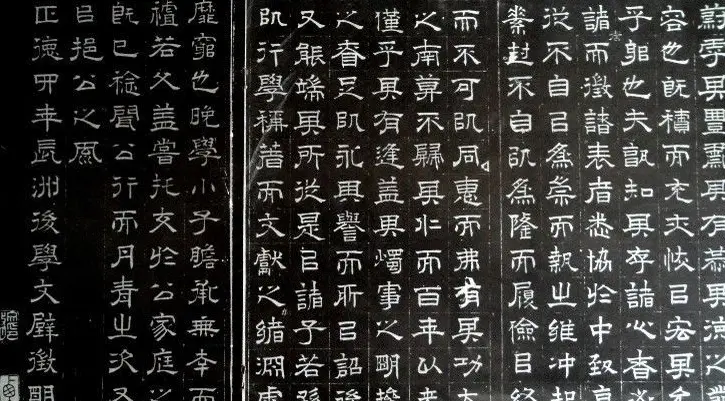 乎其豐勳其有恭
容也既積而充夾恢吕宏其
乎躬也夫孰知其存諸心者
諸而徵諸表者悉協於中致
從不自已為崇而執之維沖
封不自以為隆而履儉吕終
而不可以同惠而弗有其功
之南尊不歸其仁而百年以
僅乎其有逢蓋其燭事之明
之睿足以永其譽而所吕詔後
又能端其所從是吕諸子若孫
以行學稱著而文獻之緒淵
靡窮也晚學小子瞻承無
禮若父蓋嘗托交於公家庭之
既已稔聞公行而丹青之次又
吕挹公之風
正德甲年長洲後學文壁徵明